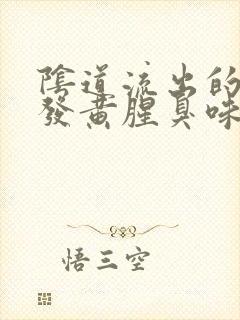 陰道流出的
發黃腥臭味
悟三空